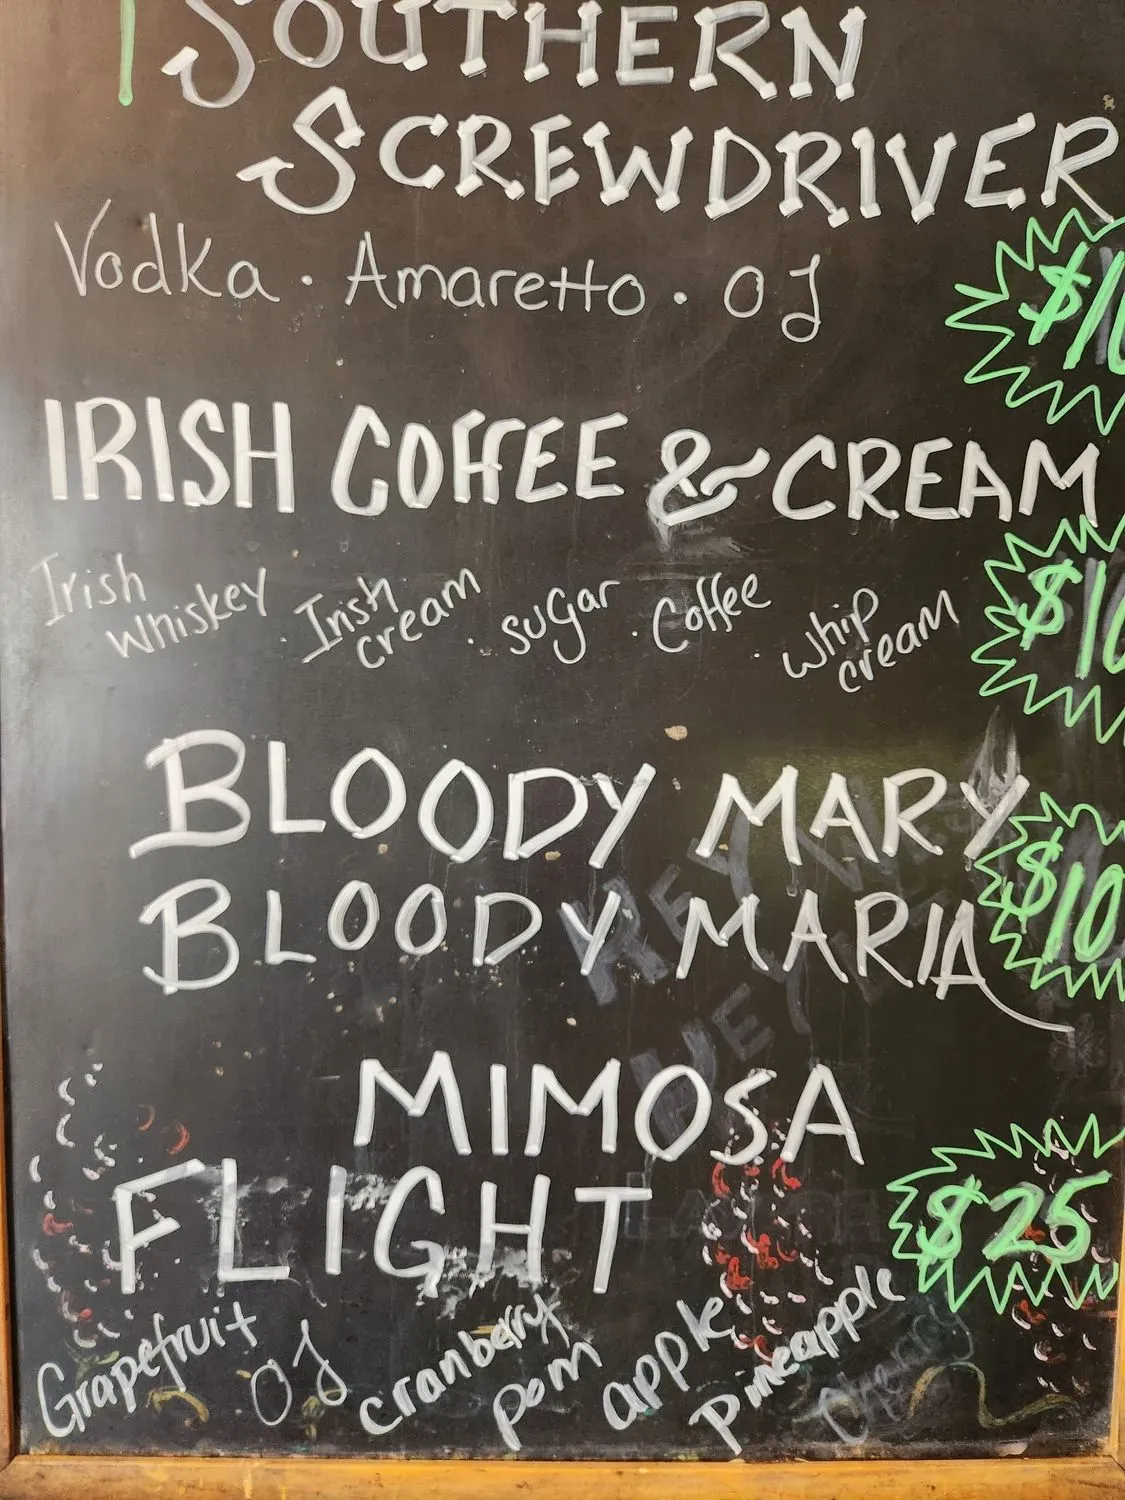 SOUTHERN
SCREWDRIVER
Vodka · Amaretto · OJ
$10
IRISH COFFEE & CREAM
Irish Whiskey · Irish cream · sugar · Coffee · whip cream
$10
BLOODY MARY
BLOODY MARIA
$10
MIMOSA
FLIGHT
$25
Grapefruit OJ cranberry pom apple pineapple